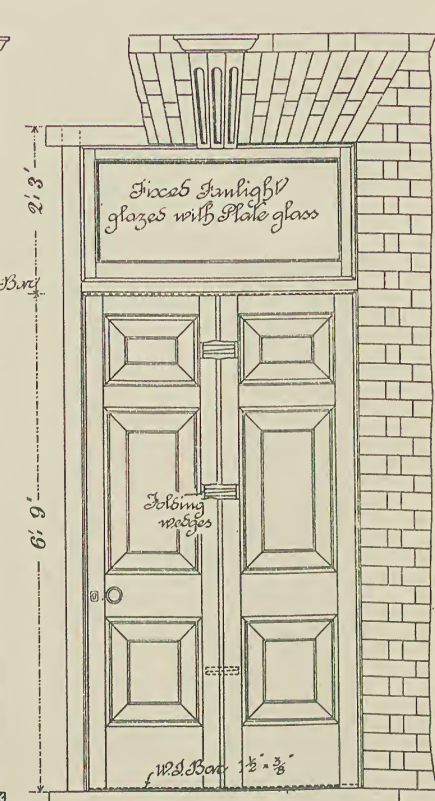 2' 3"
Fixed Fanlight
glazed with Plate glass
Bar
6' 9"
Folding
wedges
W.I. Bar 1½" × ⅜"